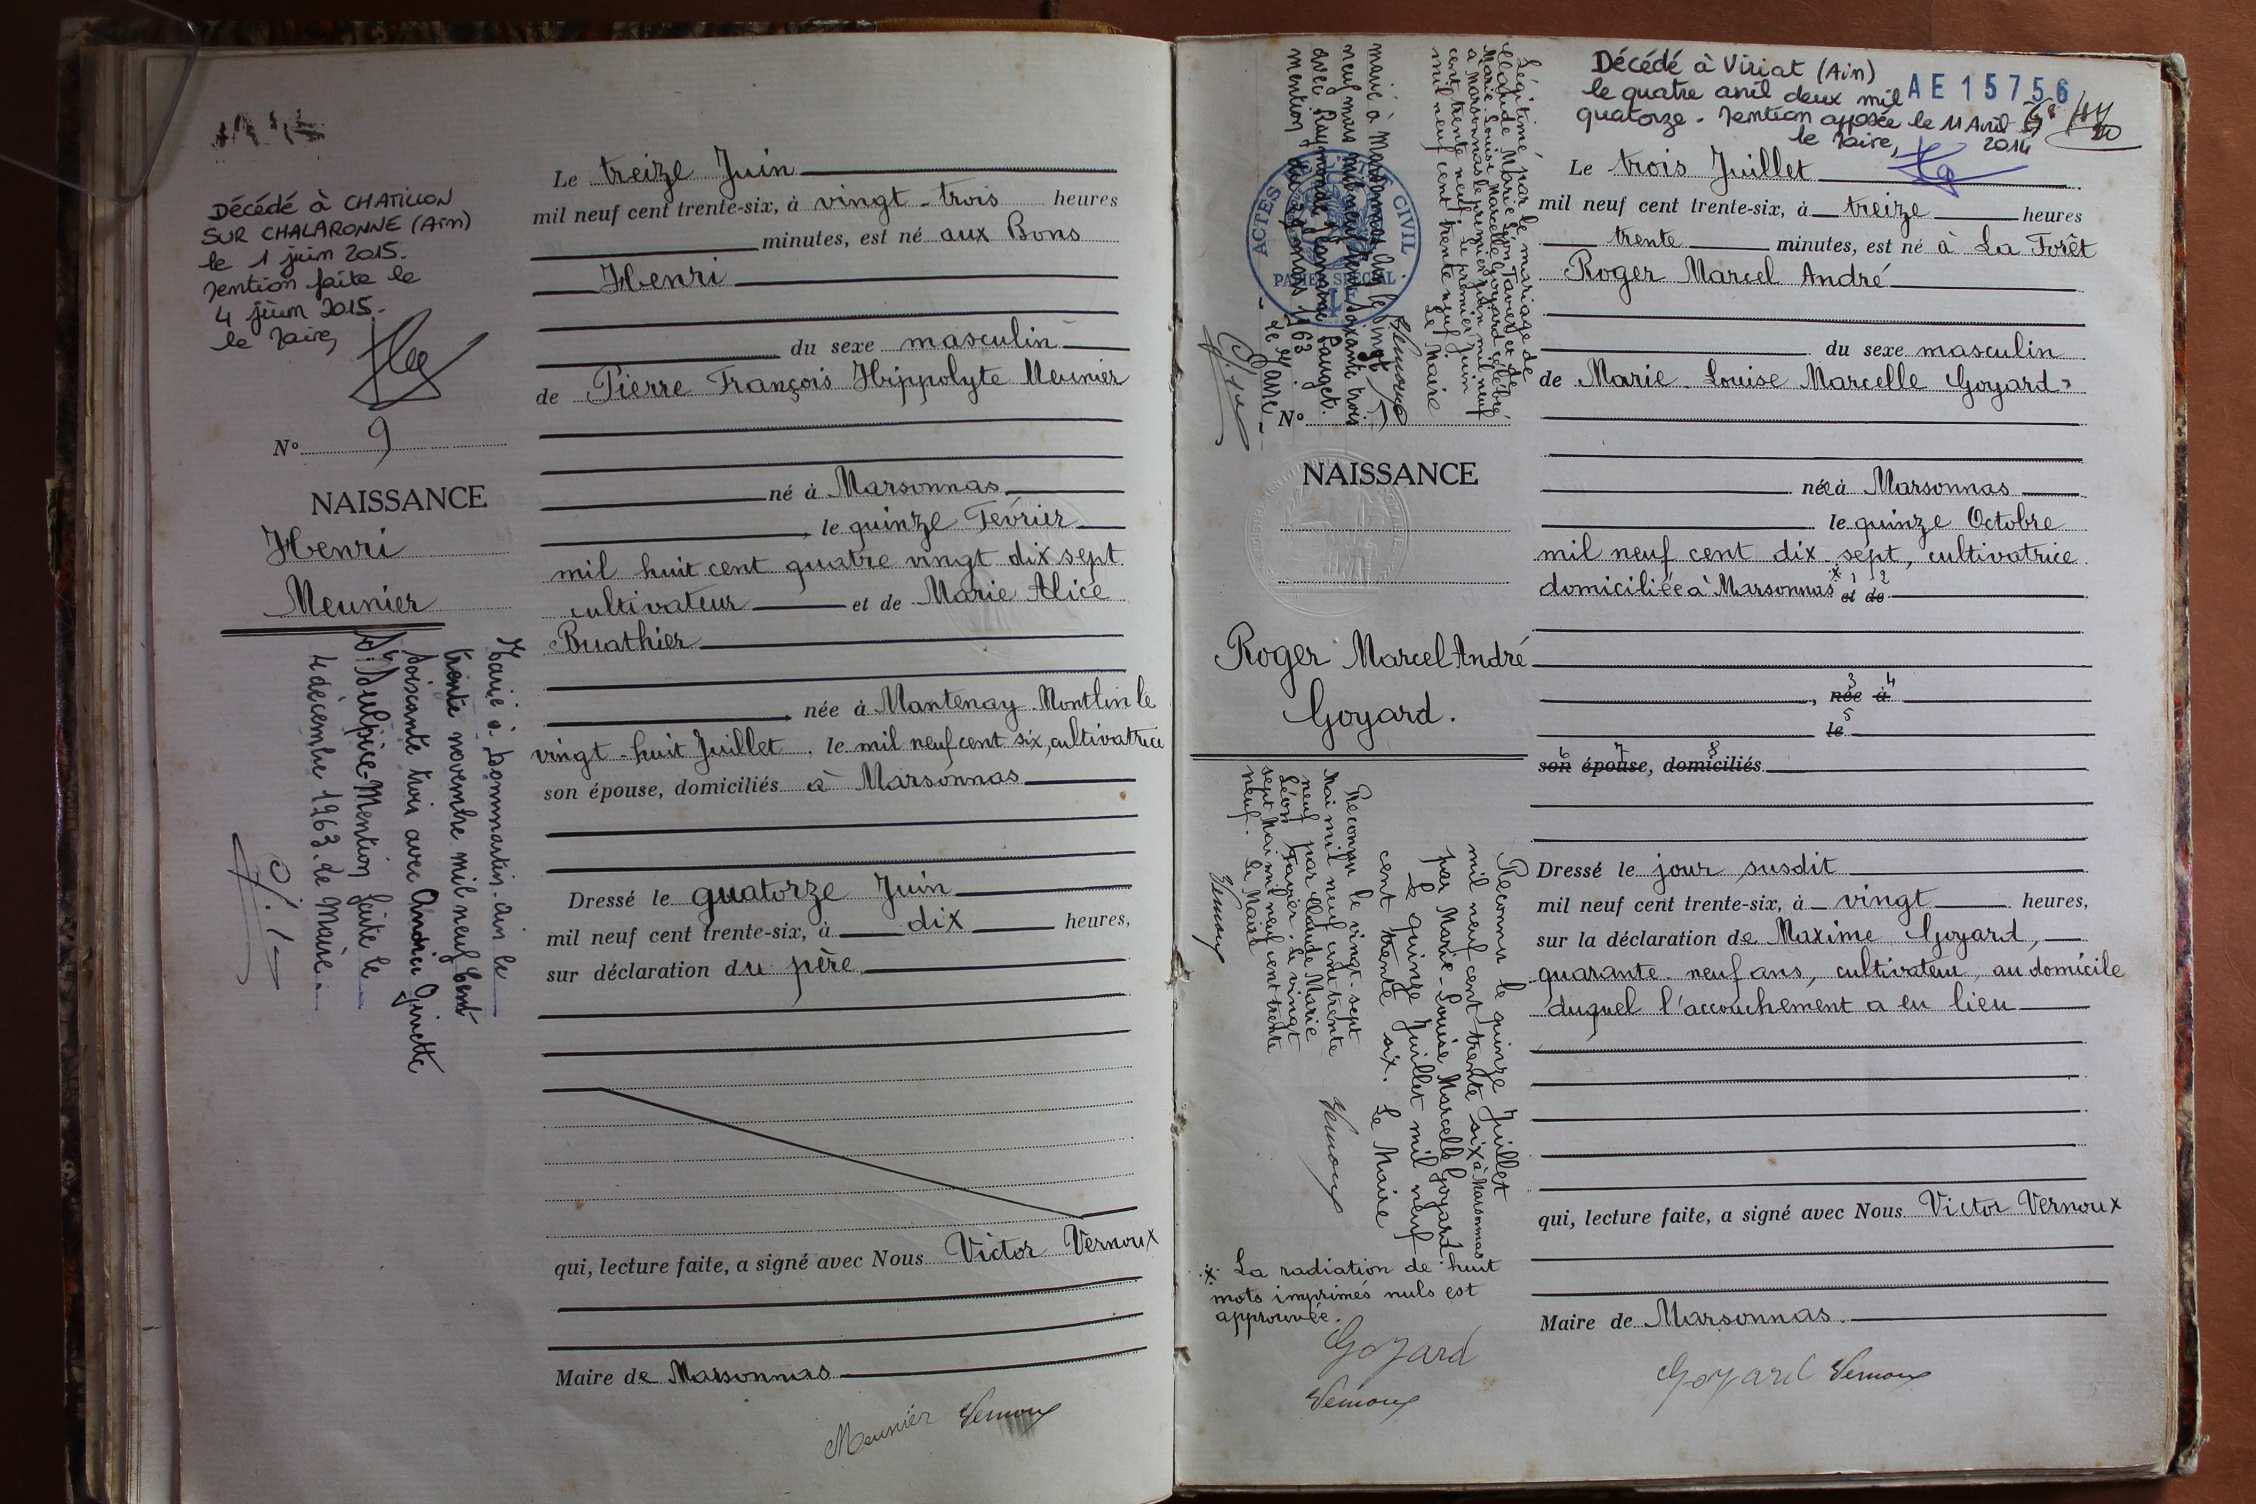 Décédé à CHATILLON
SUR CHALARONNE (Ain)
le 1 juin 2015.
Mention faite le
4 juin 2015.
le Maire,
N° 9
NAISSANCE
Henri
Meunier
Marié à Dommartin. ain le
trente novembre mil neuf cent
soixante trois avec Andrée Ginette
Sulpice. Mention faite le
4 décembre 1963. Le Maire.
Le treize Juin
mil neuf cent trente-six, à vingt-trois heures
minutes, est né aux Bons
Henri
du sexe masculin
de Pierre François Hippolyte Meunier
né à Marsonnas
, le quinze Février
mil huit cent quatre vingt dix sept
cultivateur et de Marie Alice
Buathier
, née à Mantenay-Montlin le
vingt-huit Juillet, le mil neuf cent six, cultivatrice
son épouse, domiciliés à Marsonnas
Dressé le quatorze Juin
mil neuf cent trente-six, à dix heures,
sur déclaration du père
qui, lecture faite, a signé avec Nous Victor Vernoux
Maire de Marsonnas
Meunier Vernoux
Légitimé par le mariage de
Claude Marie Léon Favier et de
Marie-Louise Marcelle Goyard célébré
à Marsonnas le premier juin mil neuf
cent trente neuf. Le premier Juin
mil neuf cent trente neuf
Le Maire
Vernoux
Marié à Marsonnas, Ain le vingt
neuf mars mil neuf cent soixante trois
avec Raymonde Pauget.
mention mars 1963
Le Maire.
ACTES CIVIL
PAPIER SPÉCIAL
N°
NAISSANCE
Roger Marcel André
Goyard.
Reconnu le quinze Juillet
mil neuf cent trente six à Marsonnas
par Marie-Louise Marcelle Goyard
Le quinze Juillet mil neuf
cent trente six. Le Maire
Vernoux
Reconnu le vingt-sept
Mai mil neuf cent trente
neuf par Claude Marie
Léon Favier. Le vingt
sept Mai mil neuf cent trente
neuf. Le Maire
Vernoux
x La radiation de huit
mots imprimés nuls est
approuvée.
Goyard
Vernoux
Décédé à Viriat (Ain)
le quatre avril deux mil
quatorze. Mention apposée le 11 Avril
2014
le Maire,
AE 15756
Le trois Juillet
mil neuf cent trente-six, à treize heures
trente minutes, est né à La Forêt
Roger Marcel André
du sexe masculin
de Marie-Louise Marcelle Goyard
née à Marsonnas
le quinze Octobre
mil neuf cent dix-sept, cultivatrice
domiciliée à Marsonnas x et 1 de 2
, née 3 à 4
le 5
son 6 épouse 7, domiciliés 8
Dressé le jour susdit
mil neuf cent trente-six, à vingt heures,
sur la déclaration de Maxime Goyard,
quarante-neuf ans, cultivateur, au domicile
duquel l'accouchement a eu lieu
qui, lecture faite, a signé avec Nous Victor Vernoux
Maire de Marsonnas
Goyard Vernoux